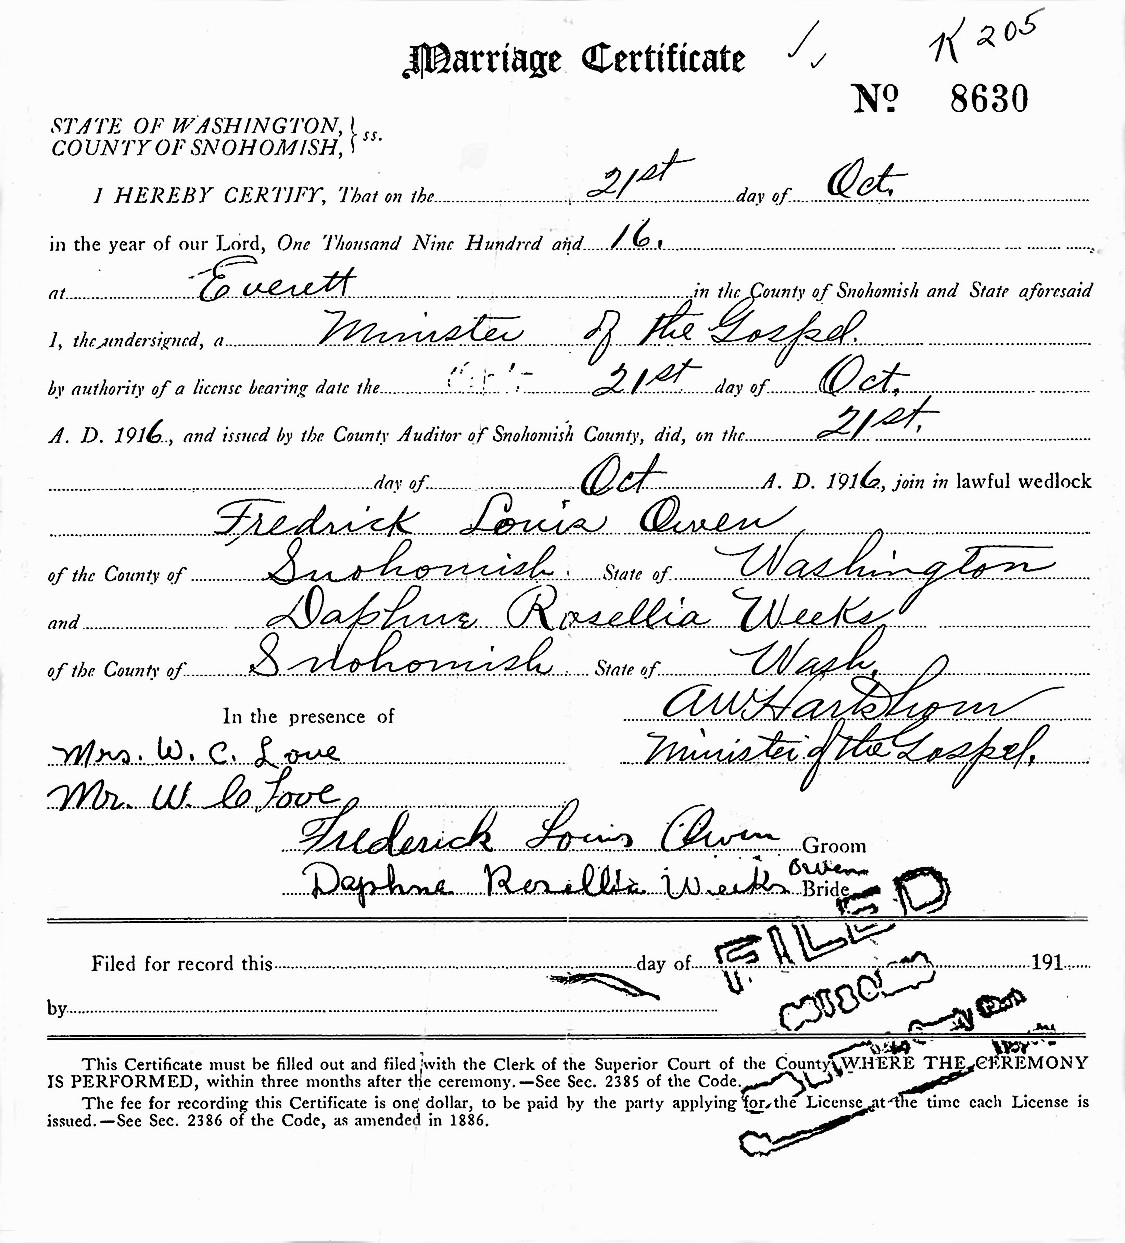 K 205
Marriage Certificate
No. 8630
STATE OF WASHINGTON, } ss.
COUNTY OF SNOHOMISH, }
I HEREBY CERTIFY, That on the 21st day of Oct.
in the year of our Lord, One Thousand Nine Hundred and 16.
at Everett in the County of Snohomish and State aforesaid
I, the undersigned, a Minister of the Gospel.
by authority of a license bearing date the 21st day of Oct.
A. D. 1916, and issued by the County Auditor of Snohomish County, did, on the 21st.
day of Oct A. D. 1916, join in lawful wedlock
Fredrick Louis Owen
of the County of Snohomish. State of Washington
and Daphne Rosellia Weeks
of the County of Snohomish. State of Wash.
In the presence of
Mrs. W. C. Love Minister of the Gospel.
Mr. W. C. Love
Frederick Louis Owen Groom
Daphne Rosellia Weeks Owen Bride
FILED
Filed for record this day of 191
by
This Certificate must be filled out and filed with the Clerk of the Superior Court of the County WHERE THE CEREMONY
IS PERFORMED, within three months after the ceremony.—See Sec. 2385 of the Code.
The fee for recording this Certificate is one dollar, to be paid by the party applying for the License at the time each License is
issued.—See Sec. 2386 of the Code, as amended in 1886.